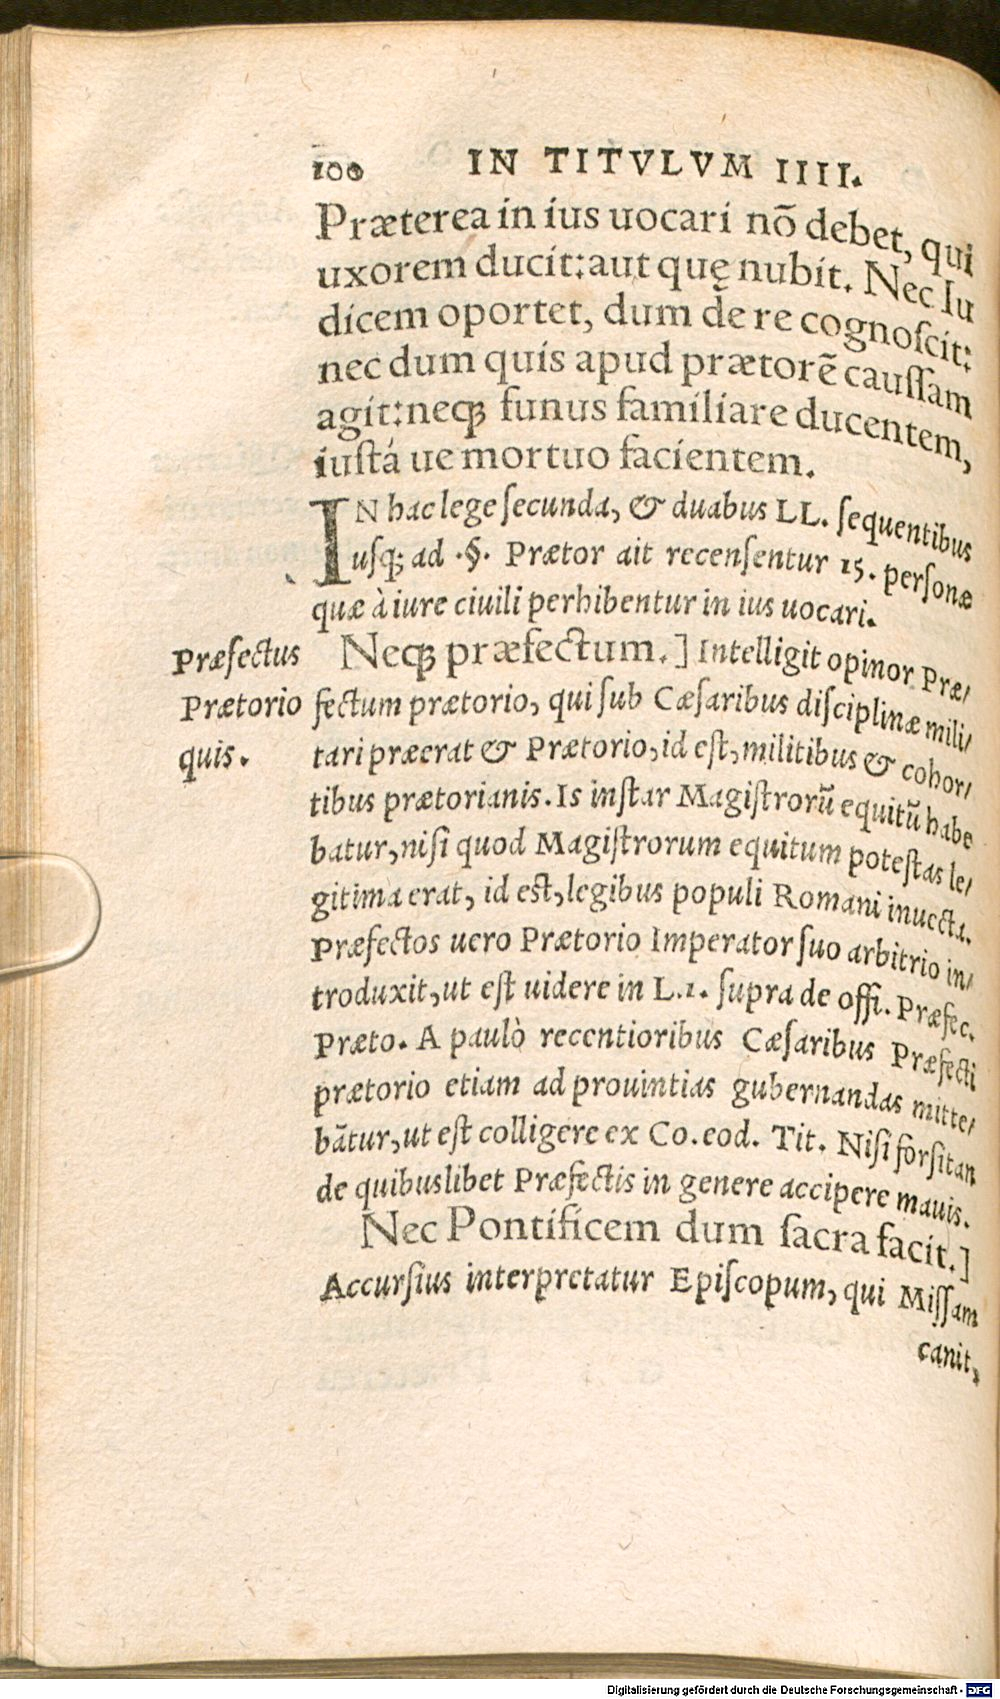 100 IN TITVLVM IIII.
Præterea in ius uocari nõ debet, qui
uxorem ducit: aut quę nubit. Nec Iu
dicem oportet, dum de re cognoſcit:
nec dum quis apud prætorẽ cauſſam
agit: neqꝫ funus familiare ducentem,
iuſtá ue mortuo facientem.
IN hac lege ſecunda, & duabus LL. ſequentibus
uſqꝫ ad .§. Prætor ait recenſentur 15. perſonæ
quæ à iure ciuili perhibentur in ius uocari.
Præfectus
Prætorio
quis.
Neqꝫ præfectum.] Intelligit opinor Præ/
fectum prætorio, qui ſub Cæſaribus diſciplinæ mili/
tari præerat & Prætorio, id eſt, militibus & cohor/
tibus prætorianis. Is inſtar Magiſtrorũ equitũ habe
batur, niſi quod Magiſtrorum equitum poteſtas le/
gitima erat, id eſt, legibus populi Romani inuecta.
Præfectos uero Prætorio Imperator ſuo arbitrio in/
troduxit, ut eſt uidere in L.1. ſupra de offi. Præfec.
Præto. A paulò recentioribus Cæſaribus Præfecti
prætorio etiam ad prouintias gubernandas mitte/
bãtur, ut eſt colligere ex Co. eod. Tit. Niſi forſitan
de quibuslibet Præfectis in genere accipere mauis.
Nec Pontificem dum ſacra facit.]
Accurſius interpretatur Epiſcopum, qui Miſſam
canit,
Digitalisierung gefördert durch die Deutsche Forschungsgemeinschaft - DFG